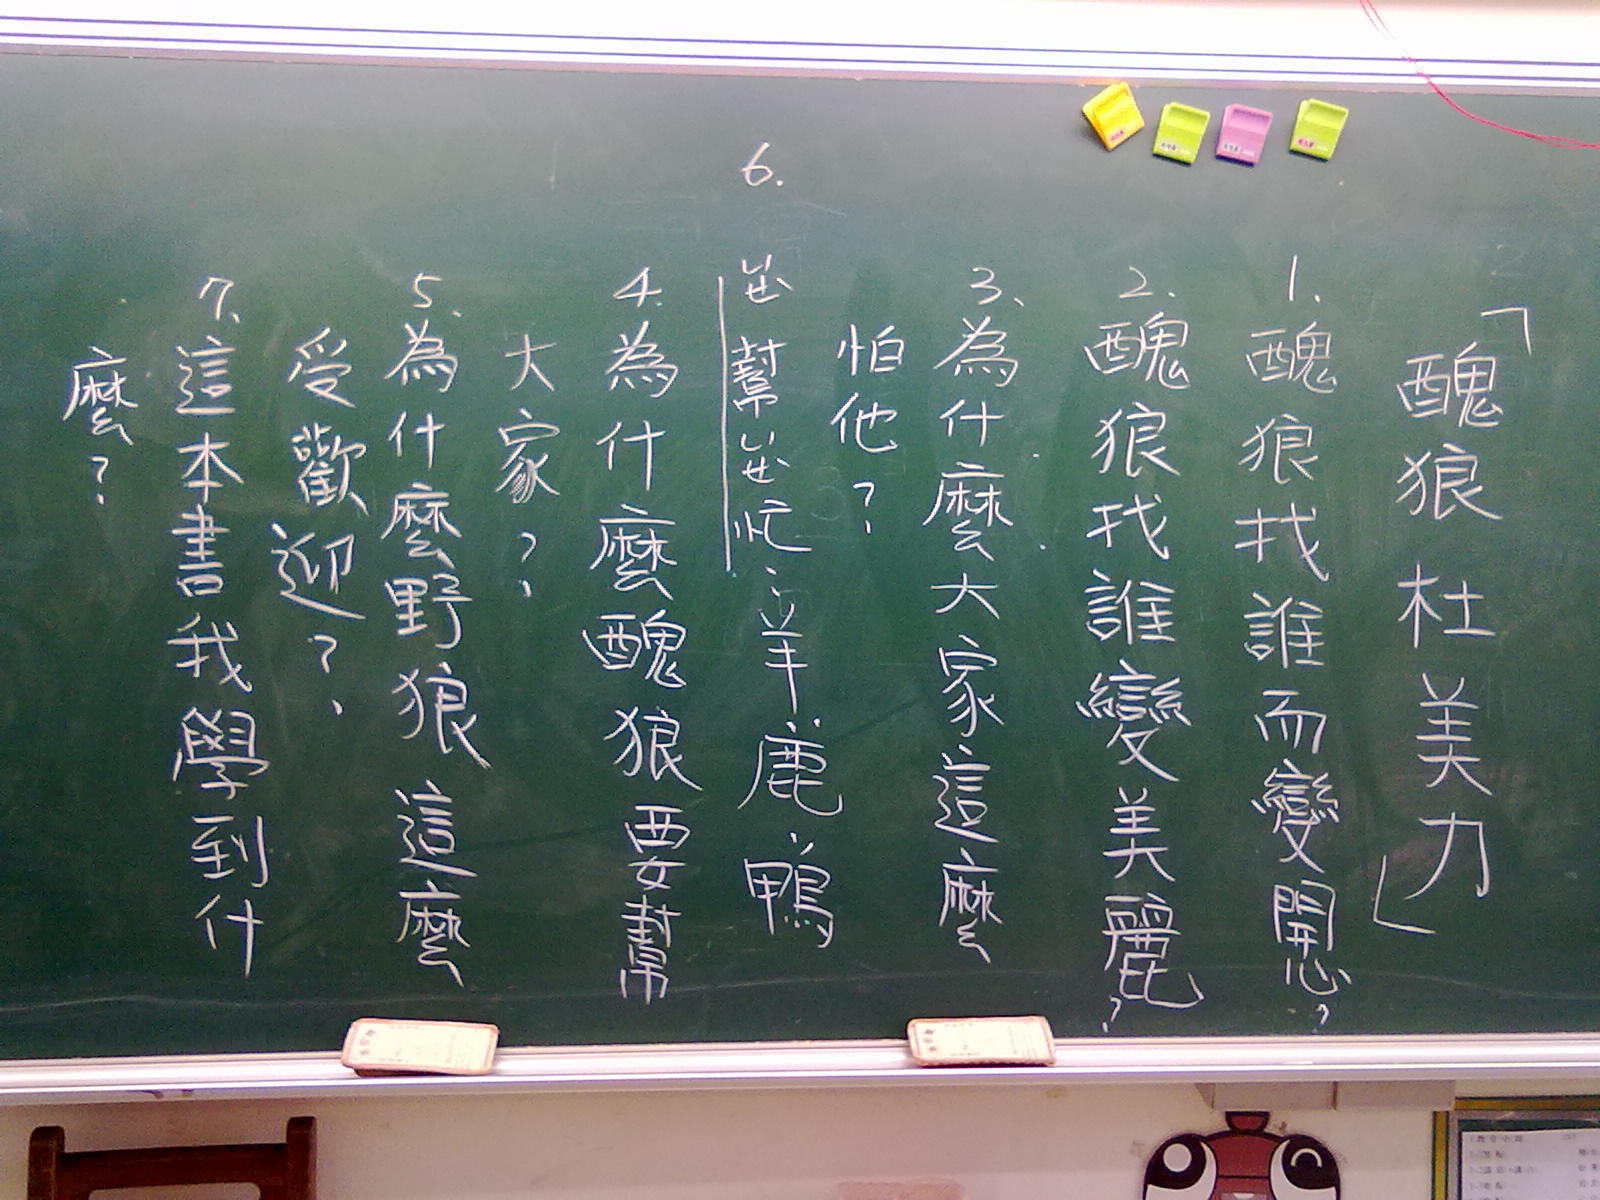 「醜狼杜美力」
1.醜狼找誰而變開心?
2.醜狼找誰變美麗?
3、為什麼大家這麼
怕他?
6. 幫忙:羊、鹿、鴨
4.為什麼醜狼要幫
大家?
5、為什麼野狼這麼
受歡迎?
7、這本書我學到什
麼?